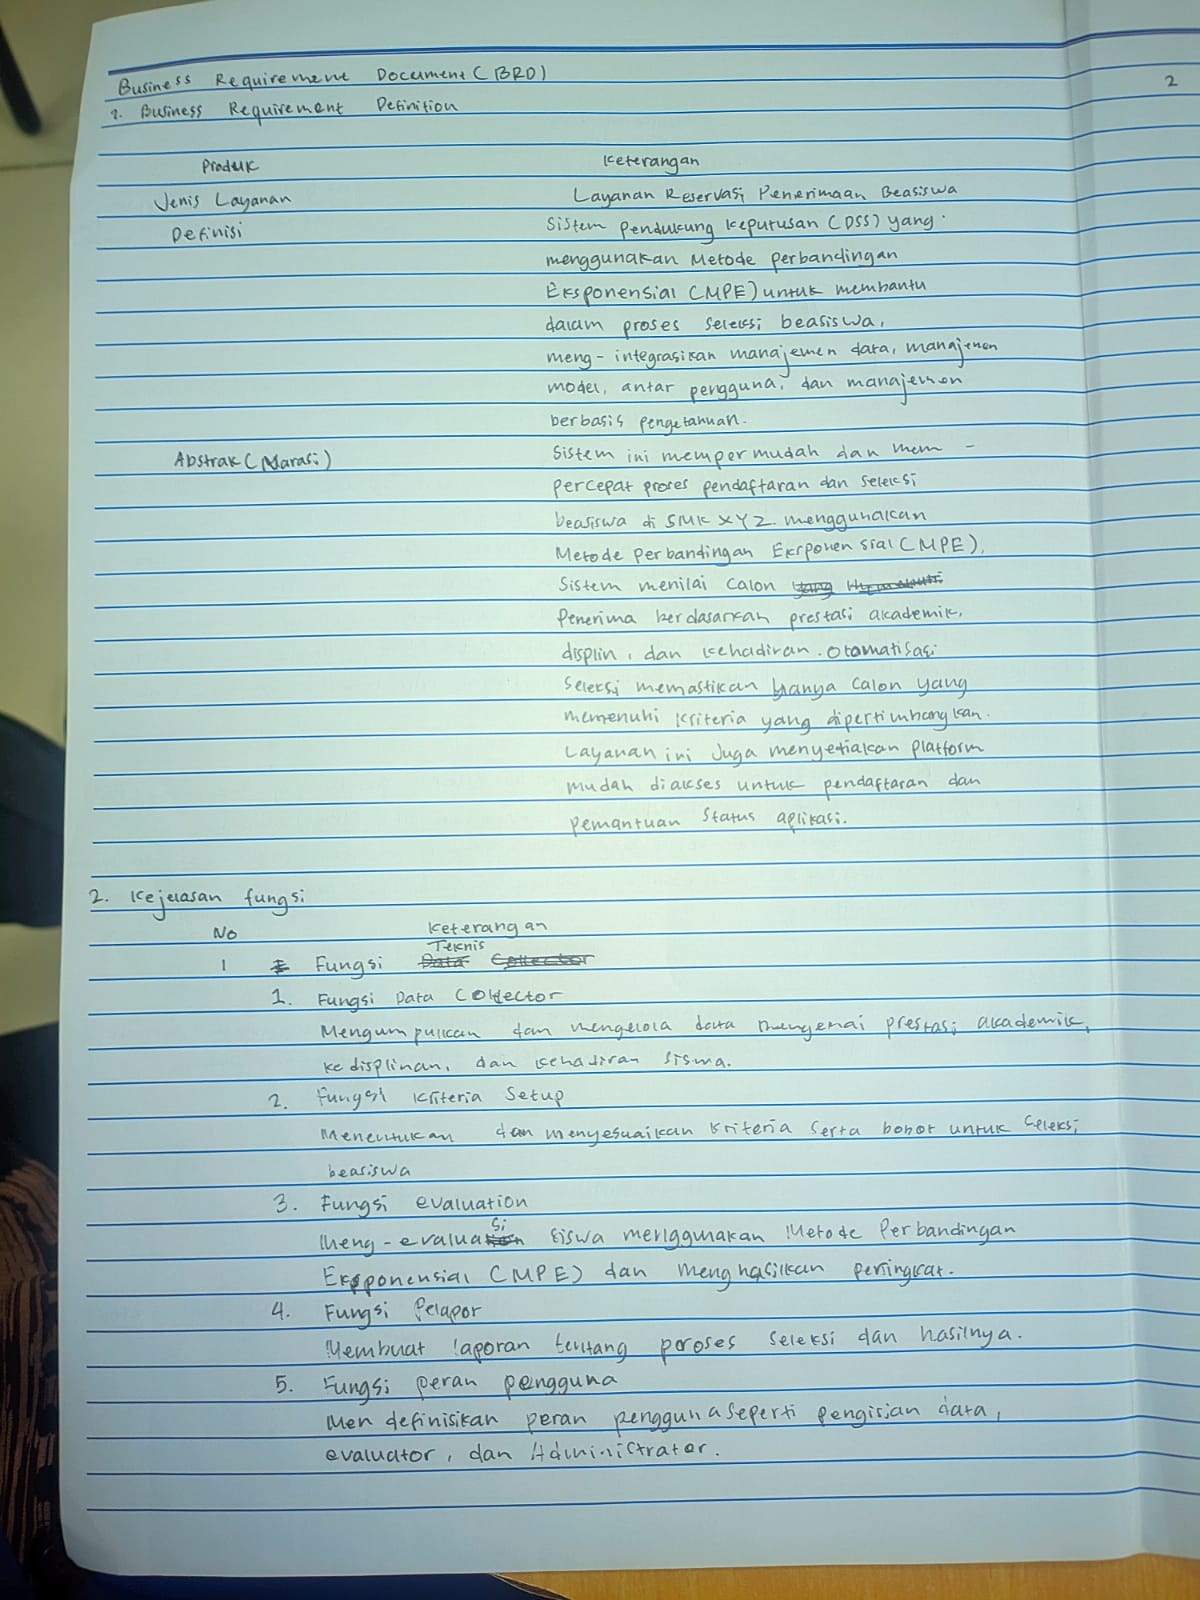 Business Requirement Document (BRD)
2
1. Business Requirement Definition
Produk Keterangan
Jenis Layanan Layanan Reservasi Penerimaan Beasiswa
Definisi Sistem Pendukung Keputusan (DSS) yang
menggunakan Metode perbandingan
Eksponensial (MPE) untuk membantu
dalam proses seleksi beasiswa,
meng-integrasikan manajemen data, manajemen
model, antar pengguna, dan manajemen
berbasis pengetahuan.
Abstrak (Narasi) Sistem ini mempermudah dan mem-
percepat proses pendaftaran dan seleksi
beasiswa di SMK XYZ. menggunakan
Metode Perbandingan Eksponensial (MPE),
Sistem menilai calon
Penerima berdasarkan prestasi akademik,
displin, dan kehadiran. Otomatisasi
Seleksi memastikan hanya calon yang
memenuhi kriteria yang dipertimbangkan.
Layanan ini Juga menyediakan platform
mudah diakses untuk pendaftaran dan
pemantuan status aplikasi.
2. Kejelasan fungsi
No Keterangan
1 Fungsi Teknis
1. Fungsi Data Collector
Mengumpulkan dan mengelola data mengenai prestasi akademik,
kedisplinan, dan kehadiran siswa.
2. Fungsi Kriteria Setup
Menentukan dan menyesuaikan kriteria serta bobot untuk seleksi
beasiswa
3. Fungsi evaluation
Meng-evaluasi siswa menggunakan Metode Perbandingan
Eksponensial (MPE) dan menghasilkan peringkat.
4. Fungsi Pelapor
Membuat laporan tentang poroses seleksi dan hasilnya.
5. Fungsi peran pengguna
Mendefinisikan peran pengguna seperti pengisian data,
evaluator, dan Administrator.